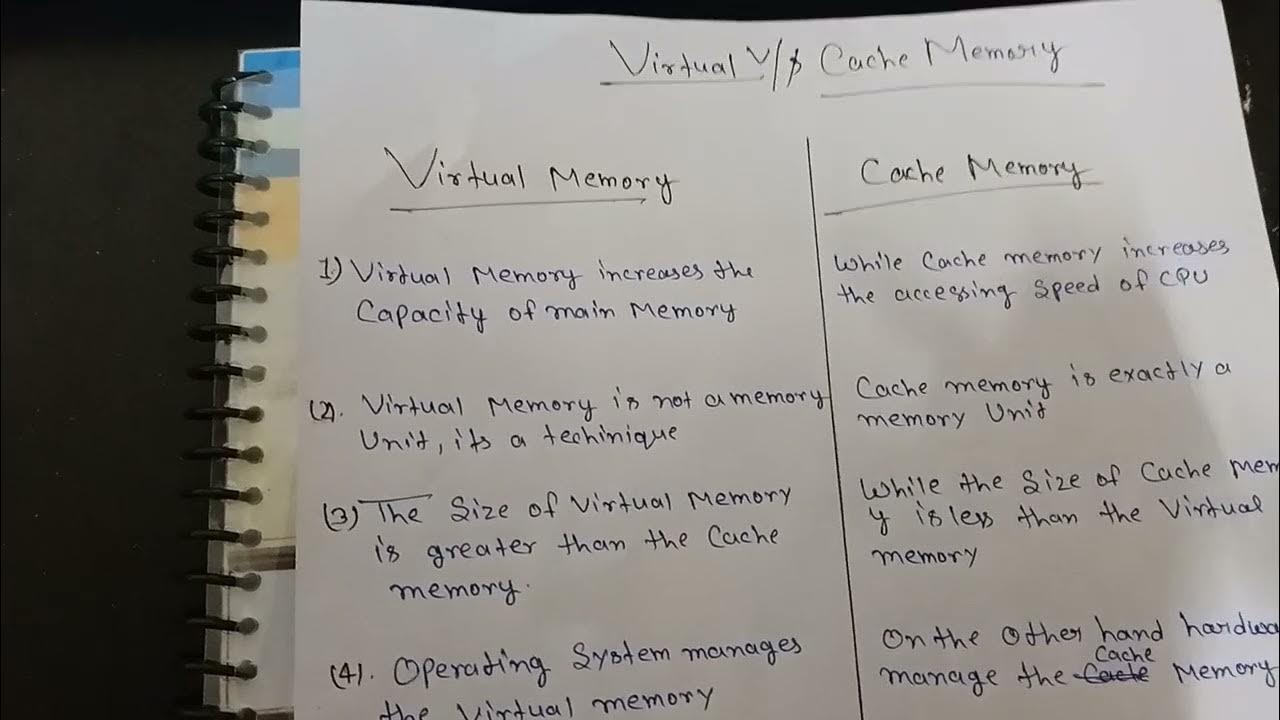 Virtual V/s Cache Memory
Virtual Memory
Cache Memory
1) Virtual Memory increases the
Capacity of main Memory
While Cache memory increases
the accessing Speed of CPU
(2). Virtual Memory is not a memory
Unit, its a techinique
Cache memory is exactly a
memory Unit
(3) The Size of Virtual Memory
is greater than the Cache
memory.
While the Size of Cache Mem
y is less than the Virtual
memory
(4). Operating System manages
the Virtual memory
On the Other hand hardwa
manage the Cache Memory